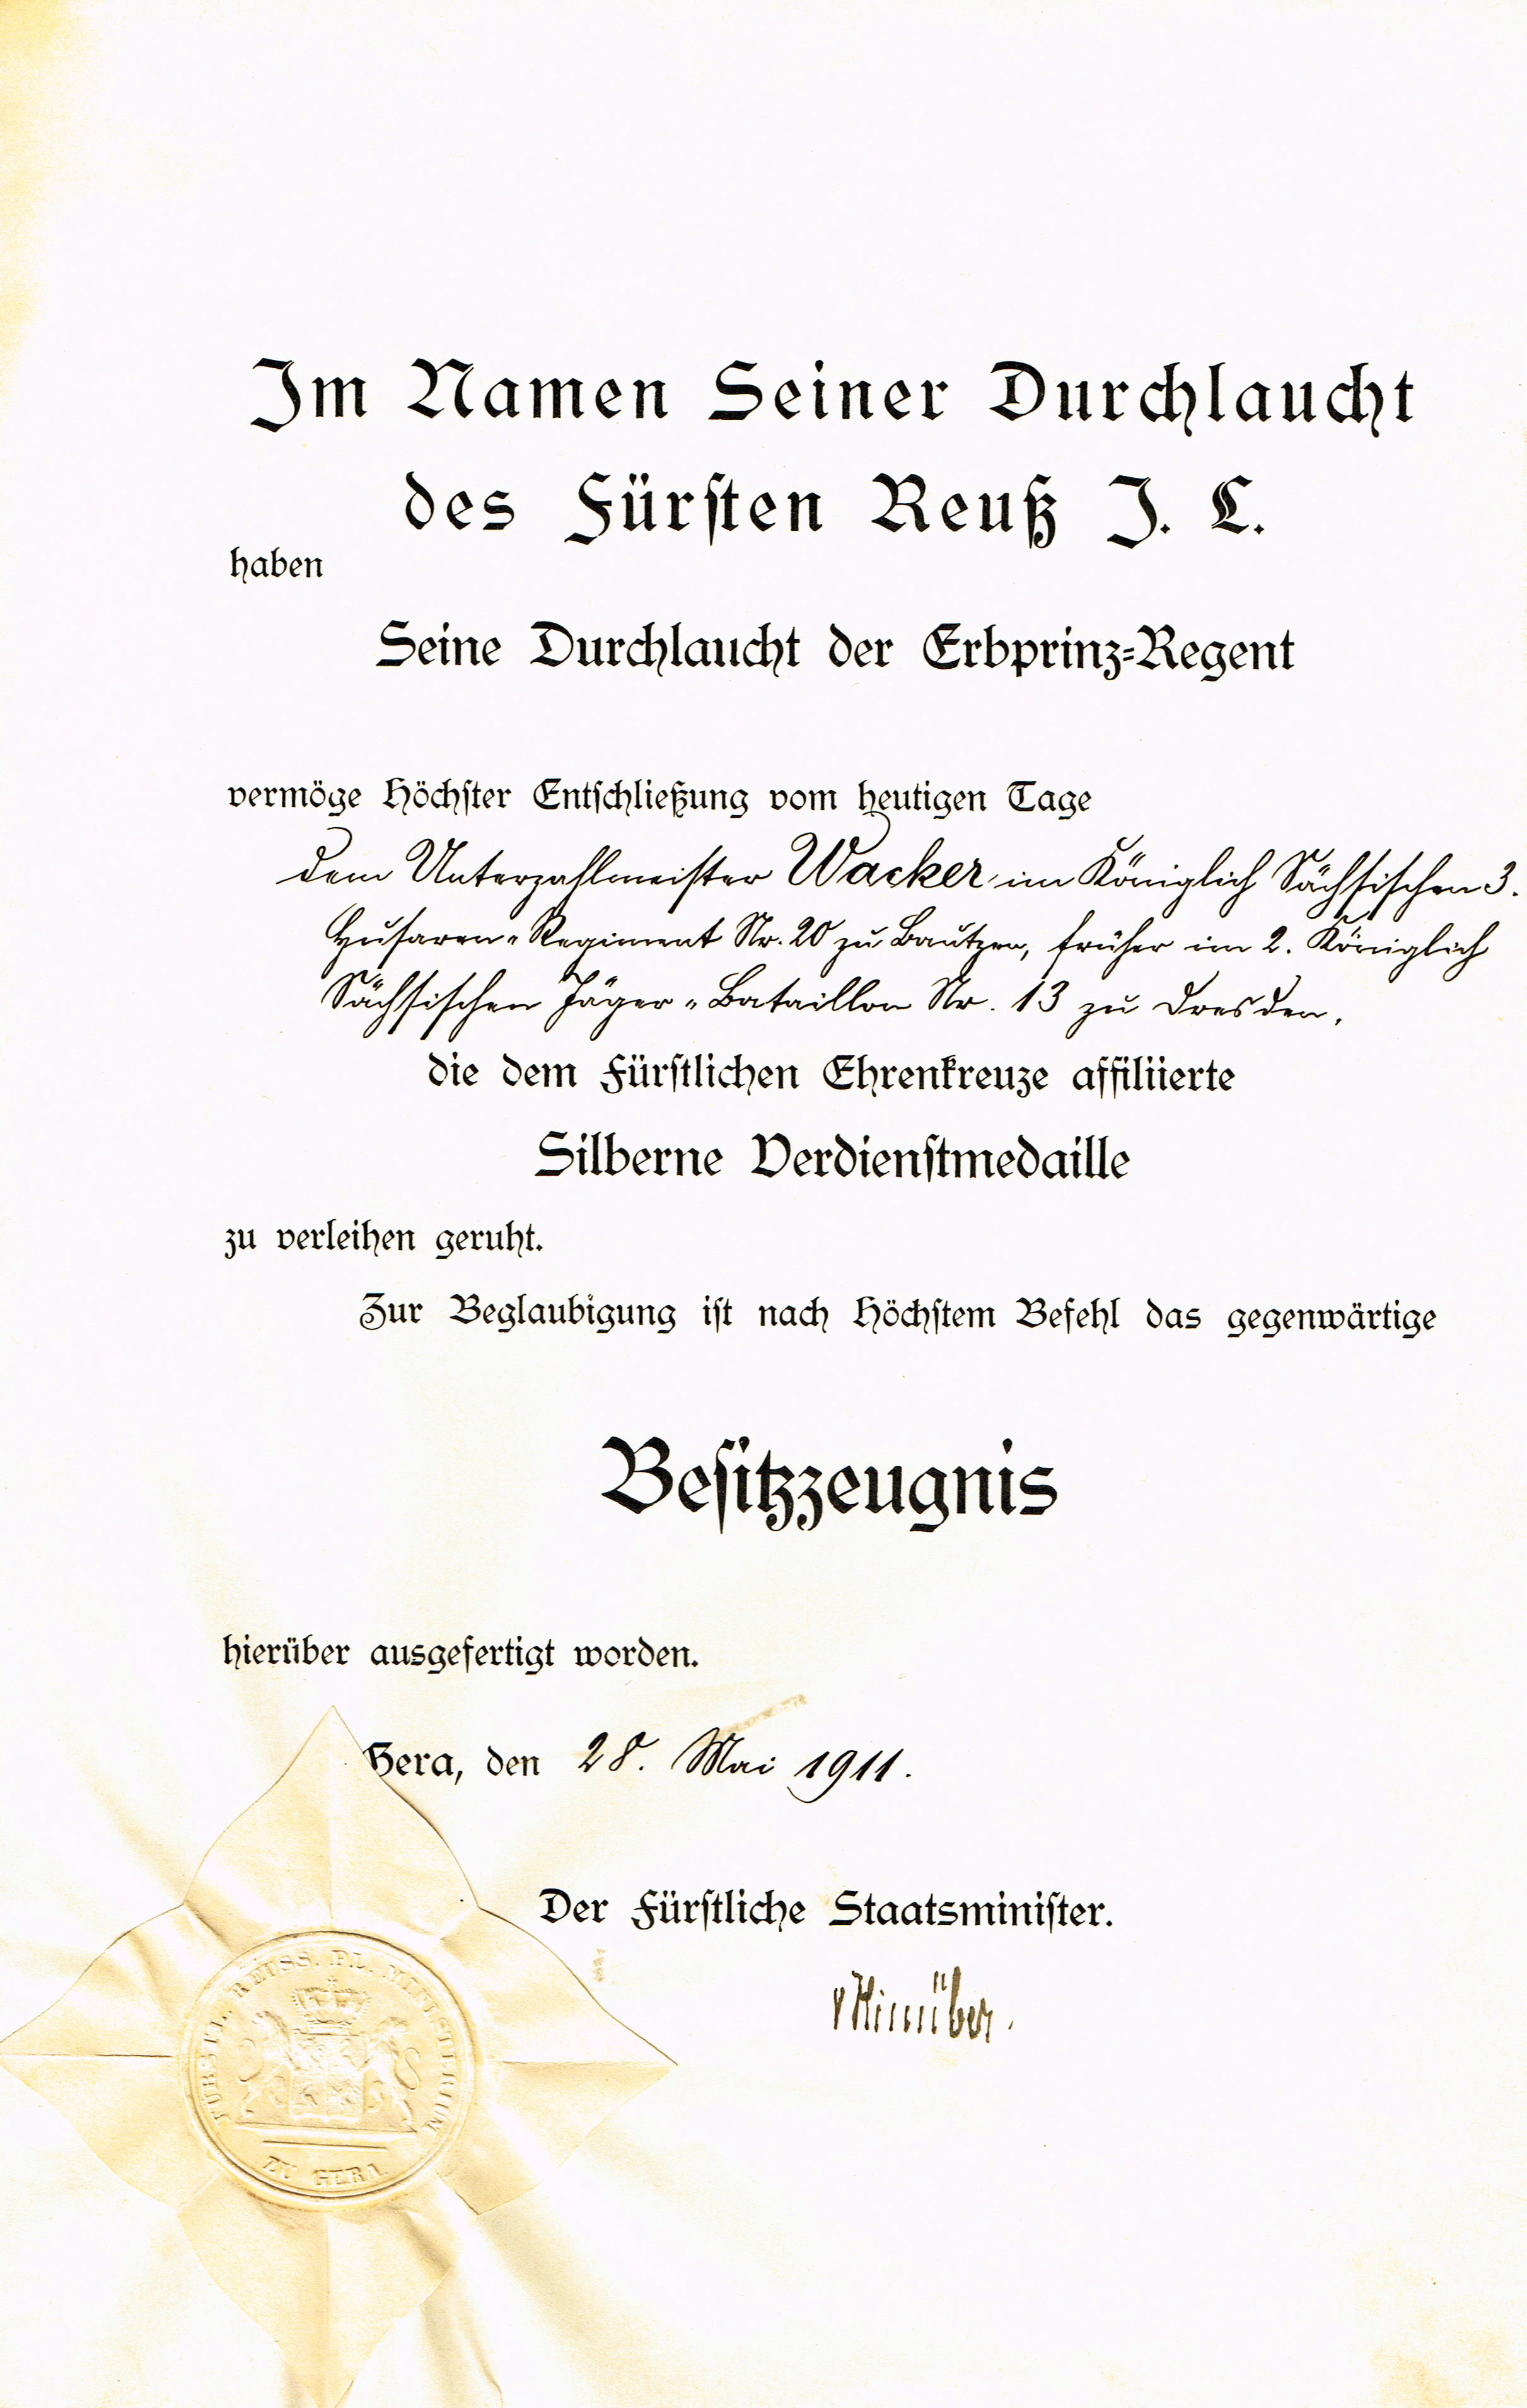 Im Namen Seiner Durchlaucht
des Fürsten Reuß J. L.
haben
Seine Durchlaucht der Erbprinz-Regent
vermöge Höchster Entschließung vom heutigen Tage
dem Unterzahlmeister Wacker im Königlich Sächsischen 3.
Husaren-Regiment Nr. 20 zu Bautzen, früher im 2. Königlich
Sächsischen Jäger-Bataillon Nr. 13 zu Dresden,
die dem Fürstlichen Ehrenkreuze affiliierte
Silberne Verdienstmedaille
zu verleihen geruht.
Zur Beglaubigung ist nach Höchstem Befehl das gegenwärtige
Besitzzeugnis
hierüber ausgefertigt worden.
Gera, den 28. Mai 1911.
Der Fürstliche Staatsminister.
vHinüber.
FÜRSTL. REUSS. PL. MINISTERIUM
ZU GERA